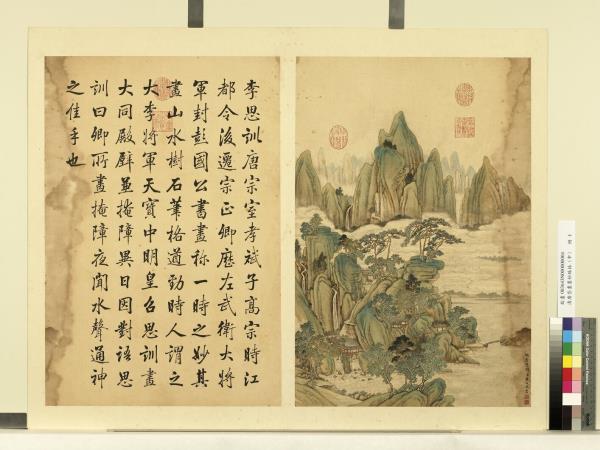 李思訓唐宗室孝斌子高宗時江
都令後進宗正卿歷左武衛大將
軍封彭國公書畫称一時之妙其
畫山水樹石筆格遒勁時人謂之
大李將軍天寶中明皇召思訓畫
大同殿壁並掩障異日因對語思
訓曰卿所畫掩障夜聞水聲通神
之佳手也